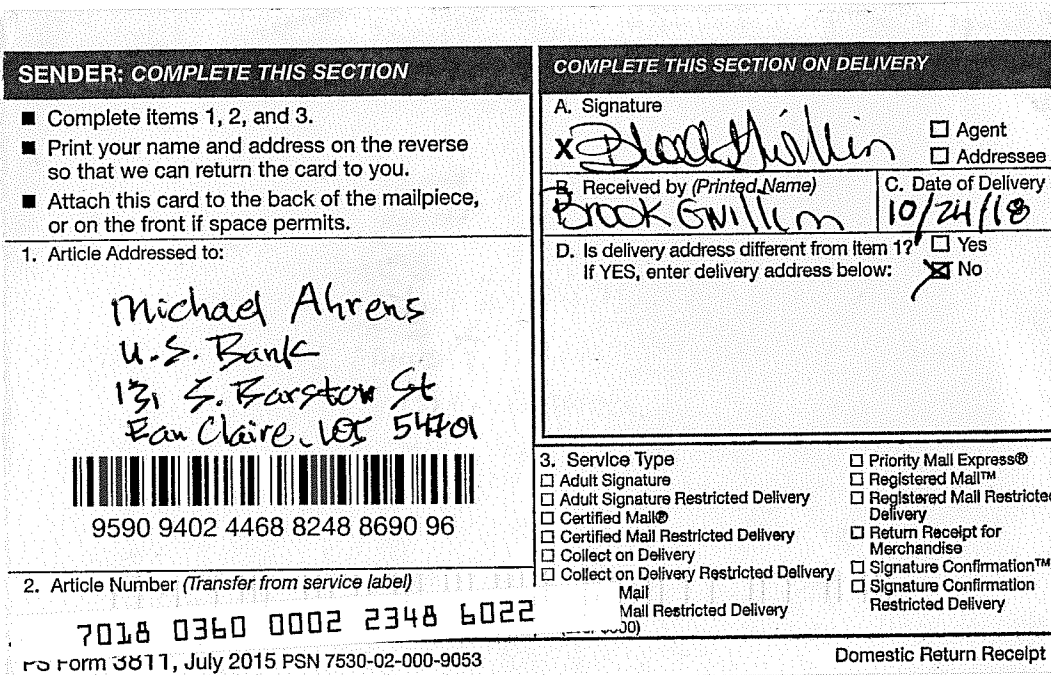 SENDER: COMPLETE THIS SECTION
■ Complete items 1, 2, and 3.
■ Print your name and address on the reverse
so that we can return the card to you.
■ Attach this card to the back of the mailpiece,
or on the front if space permits.
1. Article Addressed to:
Michael Ahrens
U.S. Bank
131 S. Barstow St
Eau Claire, WI 54701
9590 9402 4468 8248 8690 96
2. Article Number (Transfer from service label)
7018 0360 0002 2348 6022
PS Form 3811, July 2015 PSN 7530-02-000-9053
COMPLETE THIS SECTION ON DELIVERY
A. Signature
X
☐ Agent
☐ Addressee
B. Received by (Printed Name)
Brook Gwillim
C. Date of Delivery
10/24/18
D. Is delivery address different from item 1? ☐ Yes
If YES, enter delivery address below: ☒ No
3. Service Type
☐ Adult Signature
☐ Adult Signature Restricted Delivery
☐ Certified Mail®
☐ Certified Mail Restricted Delivery
☐ Collect on Delivery
☐ Collect on Delivery Restricted Delivery
Mail
Mail Restricted Delivery
☐ Priority Mail Express®
☐ Registered Mail™
☐ Registered Mail Restricted
Delivery
☐ Return Receipt for
Merchandise
☐ Signature Confirmation™
☐ Signature Confirmation
Restricted Delivery
Domestic Return Receipt